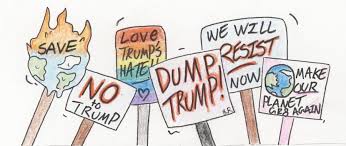 SAVE
NO
to
TRUMP
Love
TRUMP'S
HATE!!
DUMP
TRUMP!
WE WILL
RESIST
NOW
MAKE
OUR
PLANET
GR8 AGAIN